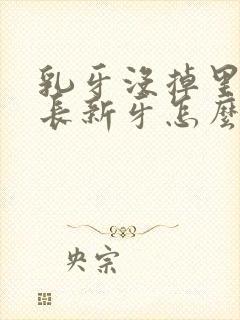 乳牙没掉里
长新牙怎麼
央宗